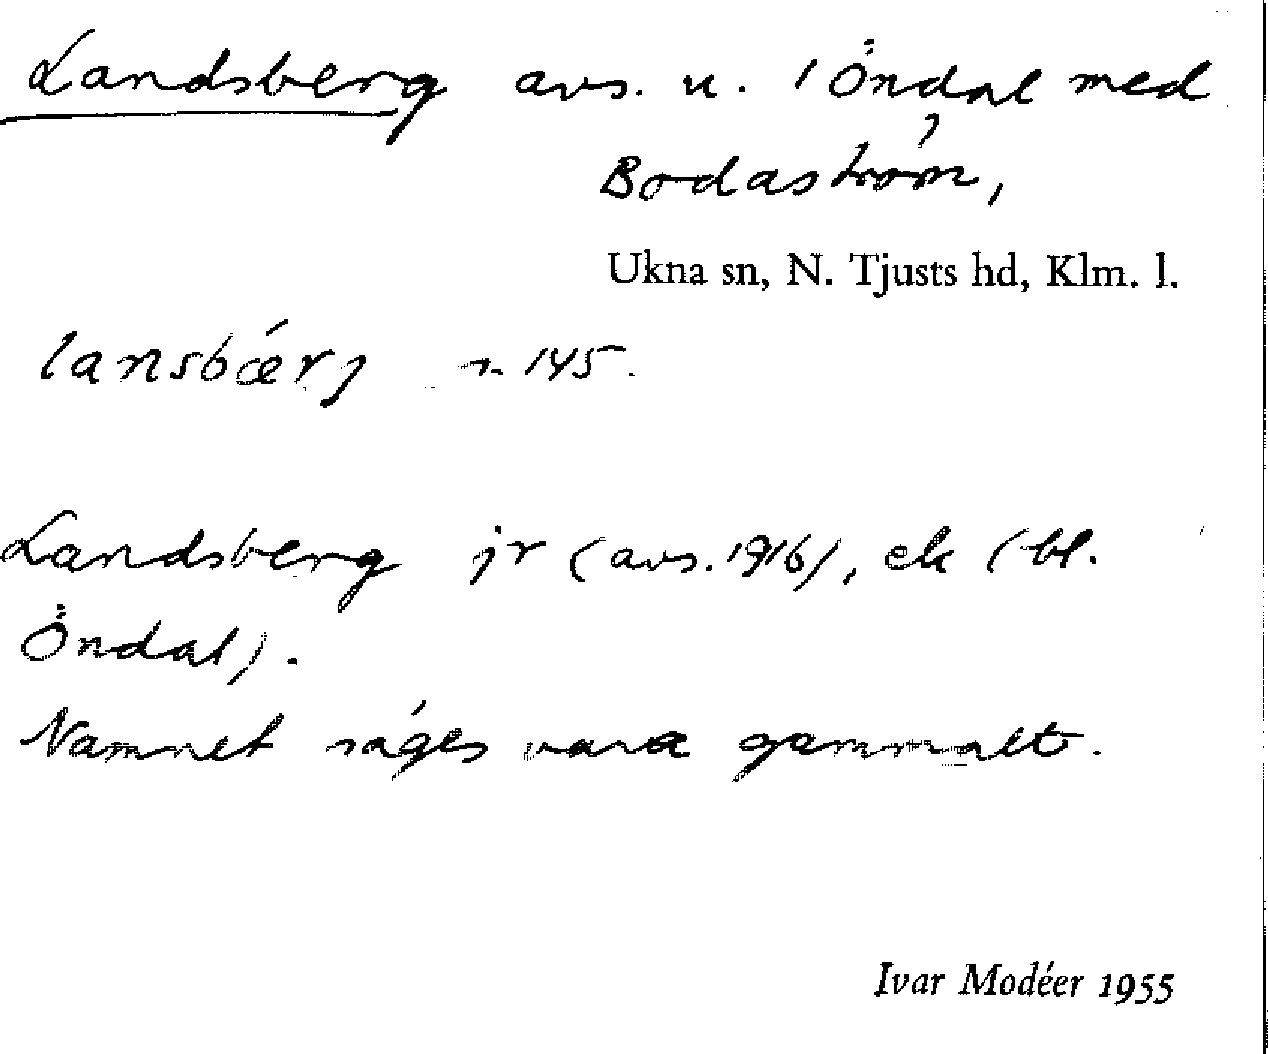 Landsberg avs. u. 1 Öndal med
Bodaström,
Ukna sn, N. Tjusts hd, Klm. l.
lansbǽrj 145.
Landsberg jr (avs. 1916), ek (bl.
Öndal).
Namnet säges vara gammalt.
Ivar Modéer 1955